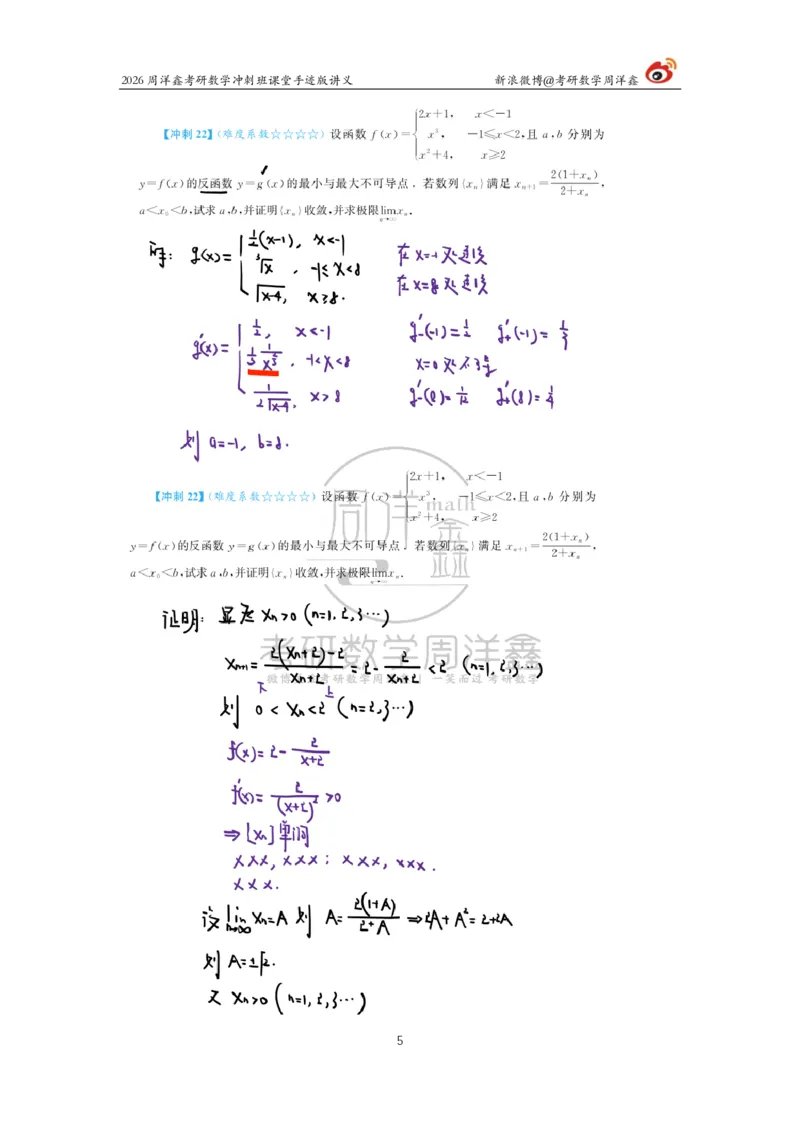 2026周洋鑫考研数学冲刺班课堂手迹版讲义 新浪微博@考研数学周洋鑫
【冲刺22】(难度系数☆☆☆☆)设函数 f(x)={2x+1, x<-1; x³, -1≤x<2; x²+4, x≥2},且 a,b 分别为
y=f(x)的反函数 y=g(x)的最小与最大不可导点.若数列{xₙ}满足 xₙ₊₁=2(1+xₙ)/(2+xₙ),
a<x₀<b,试求a,b,并证明{xₙ}收敛,并求极限lim xₙ.
n→∞
解: g(x)={½(x-1), x<-1; ³√x, -1≤x<8; √(x-4), x≥8.
在x=-1处连续
在x=8处连续
g'(x)={1/2, x<-1; 1/3 · 1/x^(2/3), -1<x<8; 1/(2√(x-4)), x>8
g'₋(-1)=1/2 g'₊(-1)=1/3
x=0处不可导
g'₋(8)=1/12 g'₊(8)=1/4
则 a=-1, b=8.
【冲刺22】(难度系数☆☆☆☆)设函数 f(x)={2x+1, x<-1; x³, -1≤x<2; x²+4, x≥2},且 a,b 分别为
y=f(x)的反函数 y=g(x)的最小与最大不可导点.若数列{xₙ}满足 xₙ₊₁=2(1+xₙ)/(2+xₙ),
a<x₀<b,试求a,b,并证明{xₙ}收敛,并求极限lim xₙ.
n→∞
周洋鑫 math
考研数学周洋鑫
证明: 显然 xₙ>0 (n=1,2,3…)
xₙ₊₁=(2(xₙ+2)-2)/(xₙ+2)=2-2/(xₙ+2)<2 (n=1,2,3…)
下 上
则 0<xₙ<2 (n=2,3…)
f(x)=2-2/(x+2)
f'(x)=2/(x+2)²>0
⇒{xₙ}单调
×××,×××;×××,×××.
×××.
设 lim xₙ=A 则 A=2(1+A)/(2+A) ⇒2A+A²=2+2A
n→∞
则 A=±√2.
又 xₙ>0 (n=1,2,3…)
5